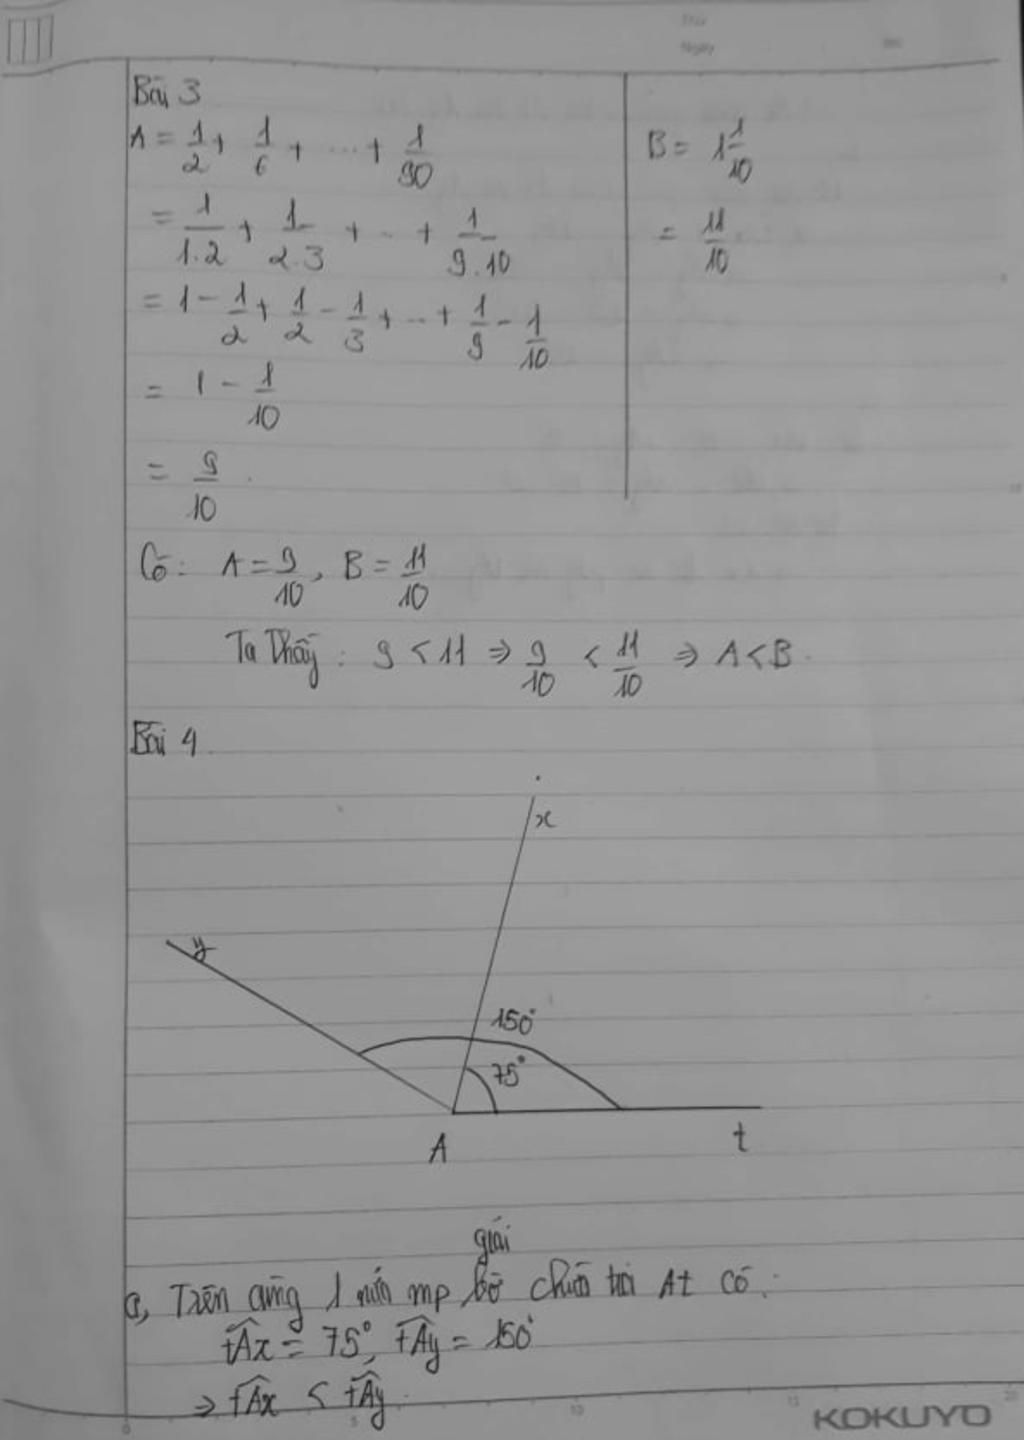 Thứ
Ngày
Bài 3
A = 1/2 + 1/6 + ... + 1/90
= 1/1.2 + 1/2.3 + .. + 1/9.10
= 1 - 1/2 + 1/2 - 1/3 + ... + 1/9 - 1/10
= 1 - 1/10
= 9/10
B = 1 1/10
= 11/10
Có: A = 9/10, B = 11/10
Ta thấy: 9 < 11 ⇒ 9/10 < 11/10 ⇒ A < B.
Bài 4
x
y
150°
75°
A
t
giải
a, Trên cùng 1 nửa mp bờ chứa tia At có:
tAx = 75°, tAy = 150°
⇒ tAx < tAy.
0 5 10 15 20
KOKUYO